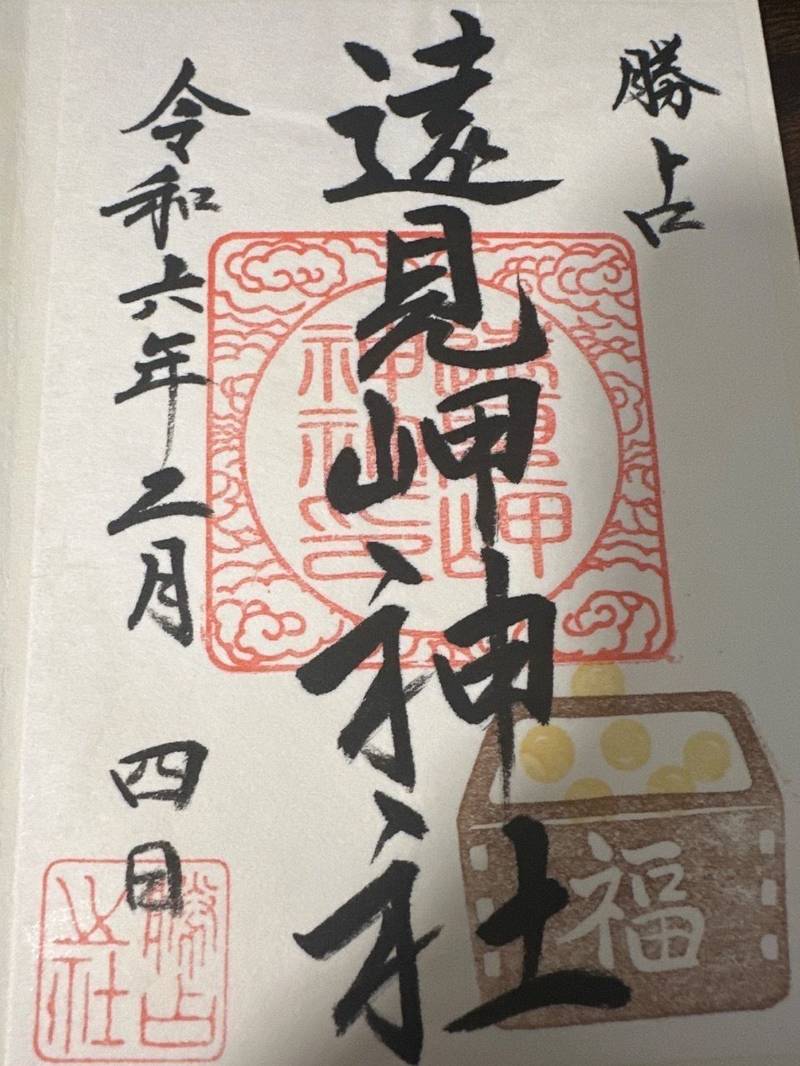 勝占
遠見岬神社
令和六年二月 四日
遠見岬
神社之印
福
勝占
之社